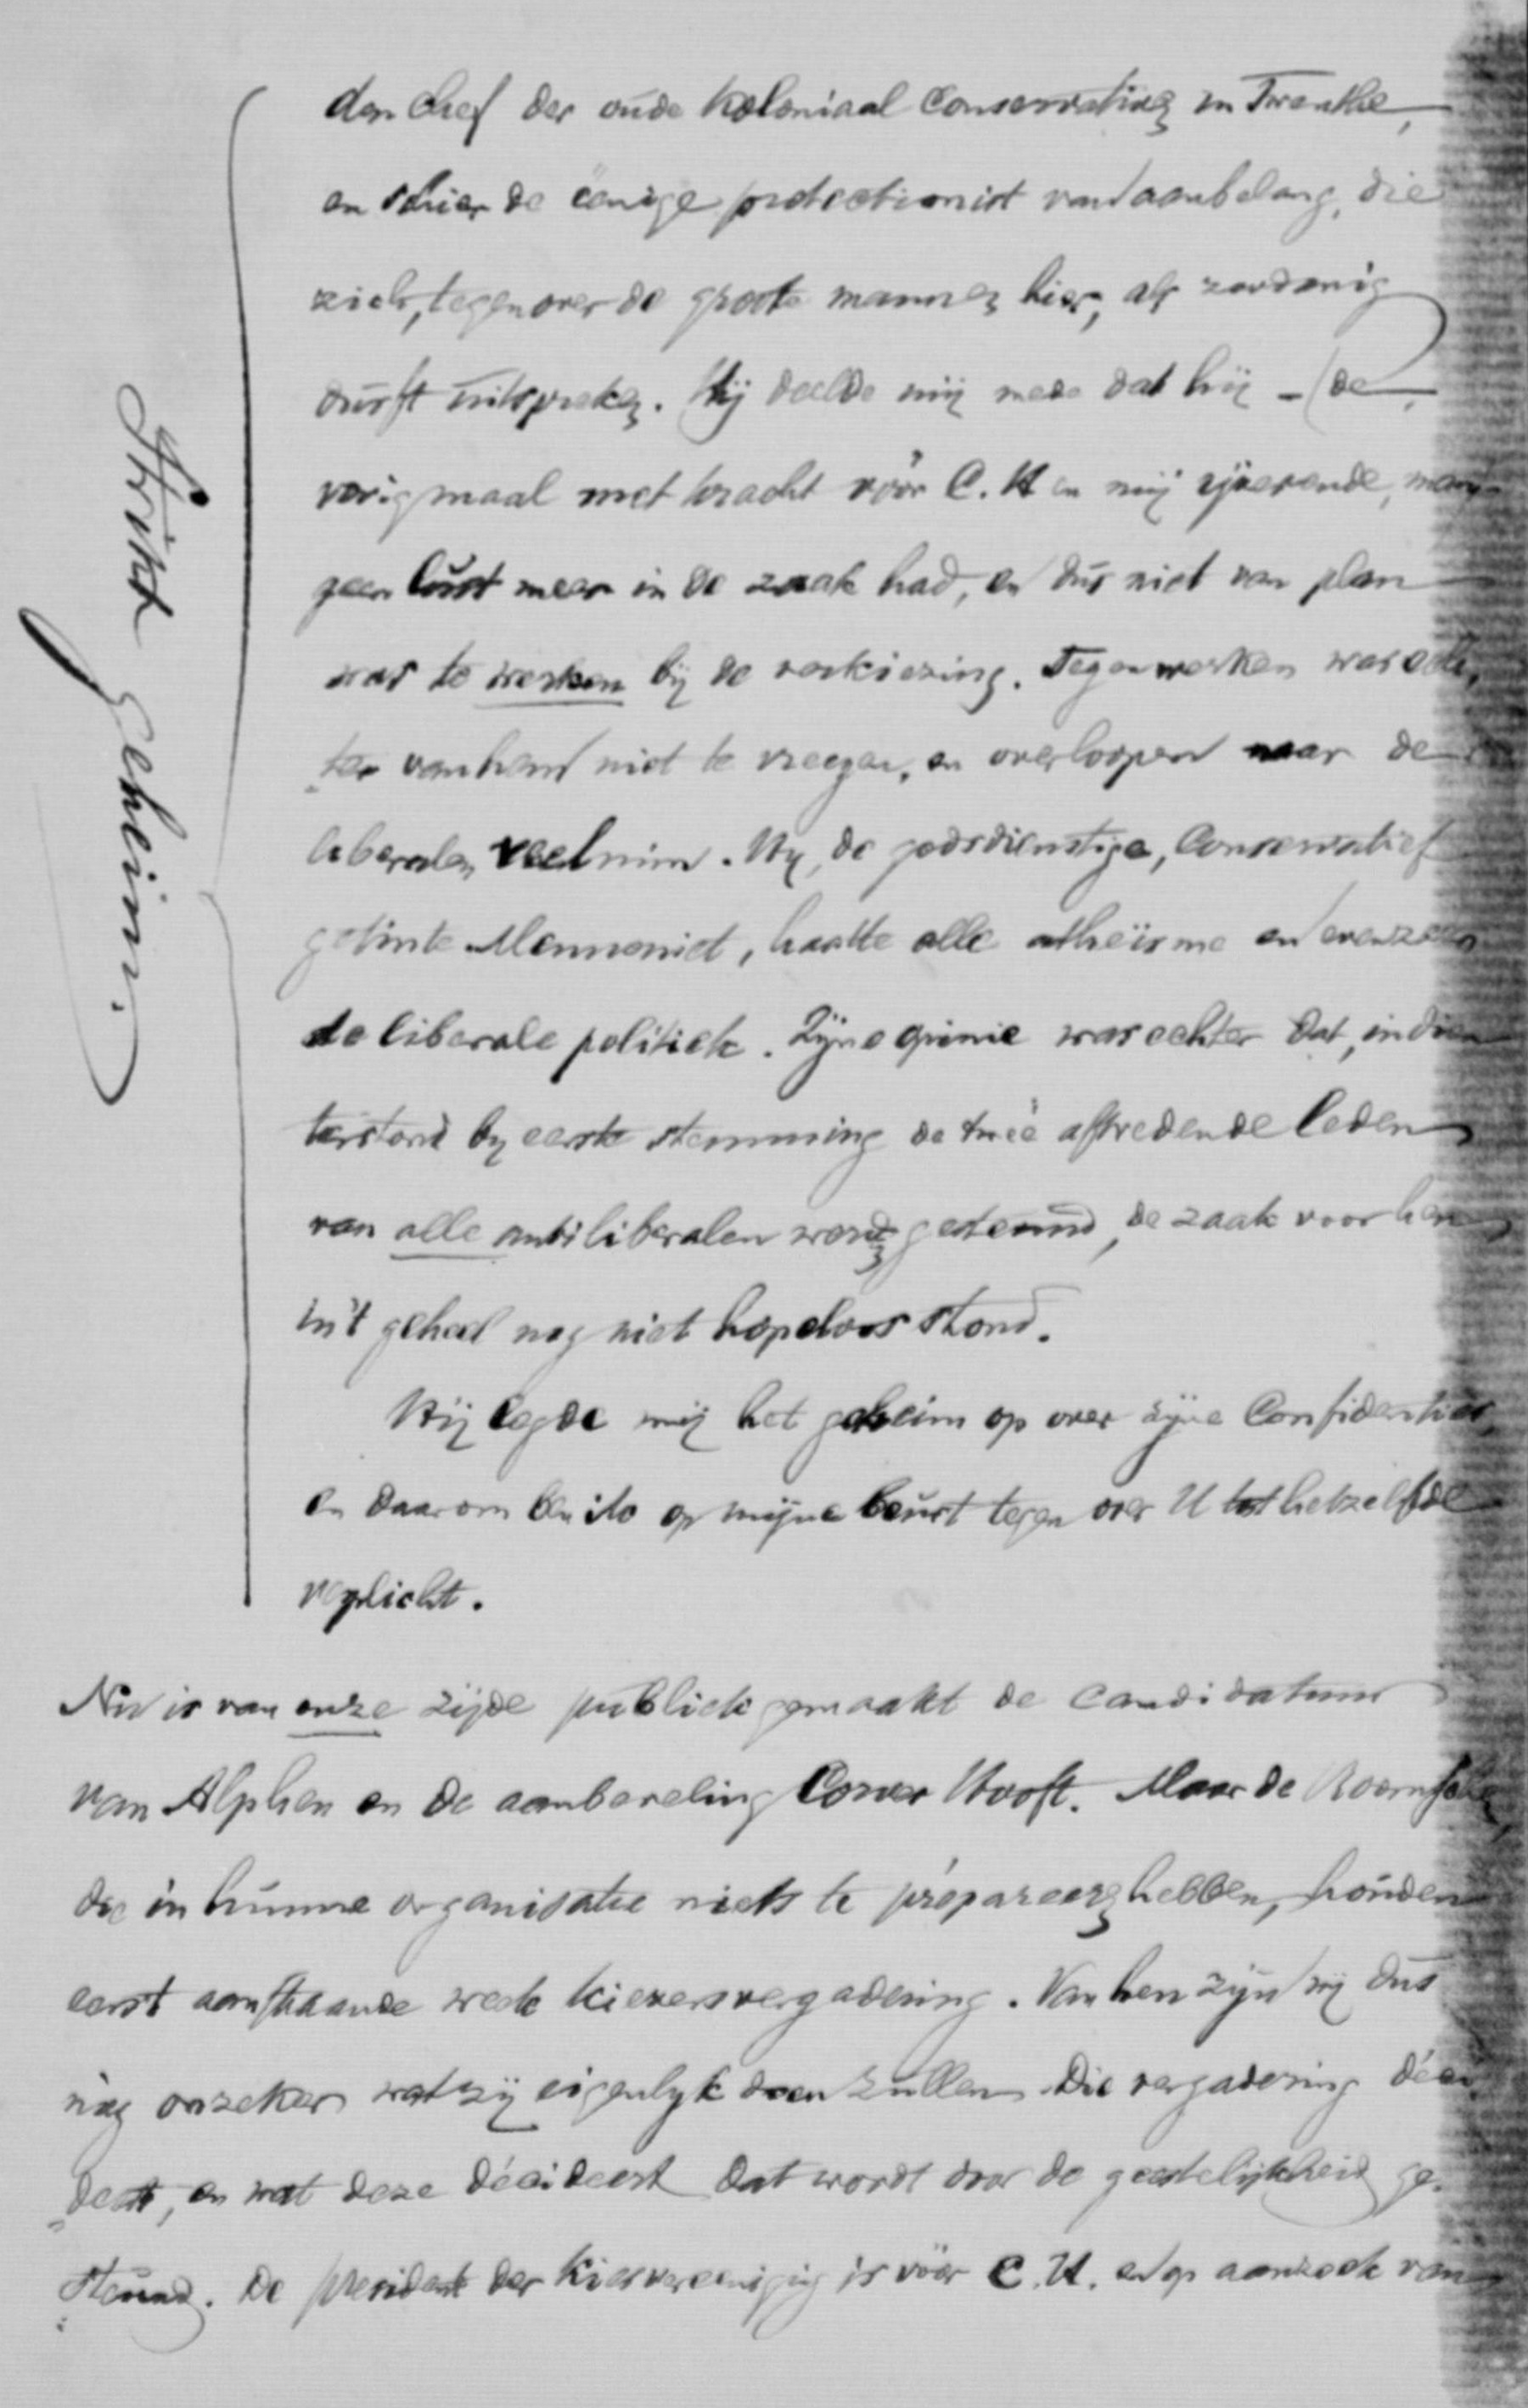 Strikt geheim.
den chef der oude koloniaal conservatieven in Twenthe,
en schier de eenige protectionist van aanbelang, die
zich, tegenover de groote mannen hier, als zoodanig
durft uitspreken. Hij deelde mij mede dat hij – (de
vorig maal met kracht vóór C. H en mij ijverende, man)
geen lust meer in de zaak had, en dus niet van plan
was te werken bij de verkiezing. Tegenwerken was ech„
„ter van hem niet te vreezen, en overloopen naar de
liberalen veel min. Hij, de godsdienstige, Conservatief
getinte Mennoniet, haatte alle atheïsme en evenzeer
de liberale politiek. Zijne opinie was echter dat, indien
terstond by eerste stemming de twee aftredende leden
van alle antiliberalen werden gesteund, de zaak voor hen
in't geheel nog niet hopeloos stond.
Hij legde mij het geheim op over zijne Confidenties,
en daarom ben ik op mijne beurt tegen over U tot hetzelfde
verplicht.
Nu is van onze zijde publiek gemaakt de candidatuur
van Alphen en de aanbeveling Corver Hooft. Maar de Roomschen,
die in hunne organisatie niets te prépareeren hebben, houden
eerst aanstaande week kiezersvergadering. Van hen zijn wij dus
nog onzeker wat zij eigenlyk doen zullen. Die vergadering déci„
„deert, en wat deze décideert dat wordt door de geestelijkheid ge„
„steund. De president der Kiesvereeniging is vóór C. H. en op aanzoek van